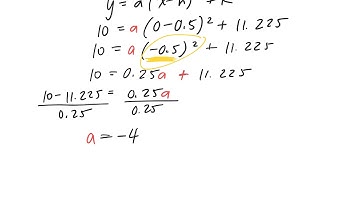 y = a(x-h)² + k
10 = a(0-0.5)² + 11.225
10 = a(-0.5)² + 11.225
10 = 0.25a + 11.225
10-11.225 = 0.25a
0.25 0.25
a = -4